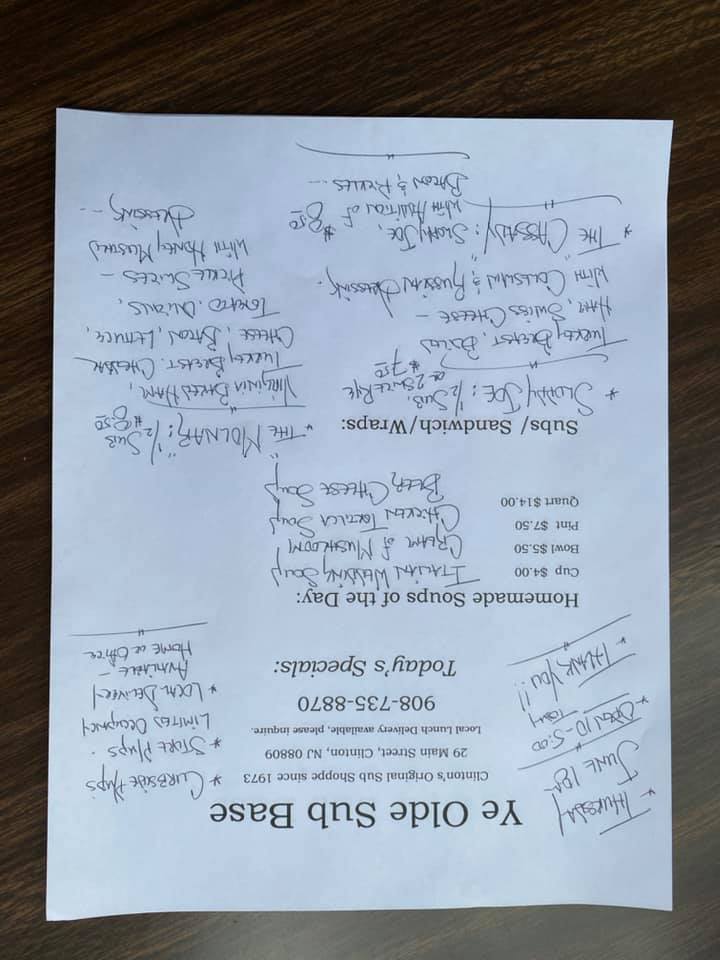 Ye Olde Sub Base
Clinton's Original Sub Shoppe since 1973
29 Main Street, Clinton, NJ 08809
Local Lunch Delivery available, please inquire.
908-735-8870
Today's Specials:
THURSDAY
JUNE 18th
OPEN 10-5:00
TODAY
THANK YOU!!
* CURBSIDE P/ups
* STORE P/ups
LIMITED OCCUPANCY
* LOCAL DELIVERY
AVAILABLE -
HOME or OFFICE
Homemade Soups of the Day:
Cup $4.00
Bowl $5.50
Pint $7.50
Quart $14.00
ITALIAN WEDDING SOUP
CREAM of MUSHROOM
CHICKEN TORTILLA SOUP
BEER CHEESE SOUP
Subs/ Sandwich/Wraps:
* SLOPPY JOE: 1/2 SUB,
or 2 SLICE RYE
$7.50
TURKEY BREAST, BAKED
HAM, SWISS CHEESE -
WITH COLESLAW & RUSSIAN DRESSING.
* "THE CASSADY": SLOPPY JOE,
WITH ADDITION of $8.50
BACON & PICKLES ---
* "THE MOLNAR": 1/2 SUB
$8.50
VIRGINIA BAKED HAM,
TURKEY BREAST, CHEDDAR
CHEESE, BACON, LETTUCE,
TOMATO, ONIONS,
PICKLE SLICES -
WITH HONEY MUSTARD
DRESSING --